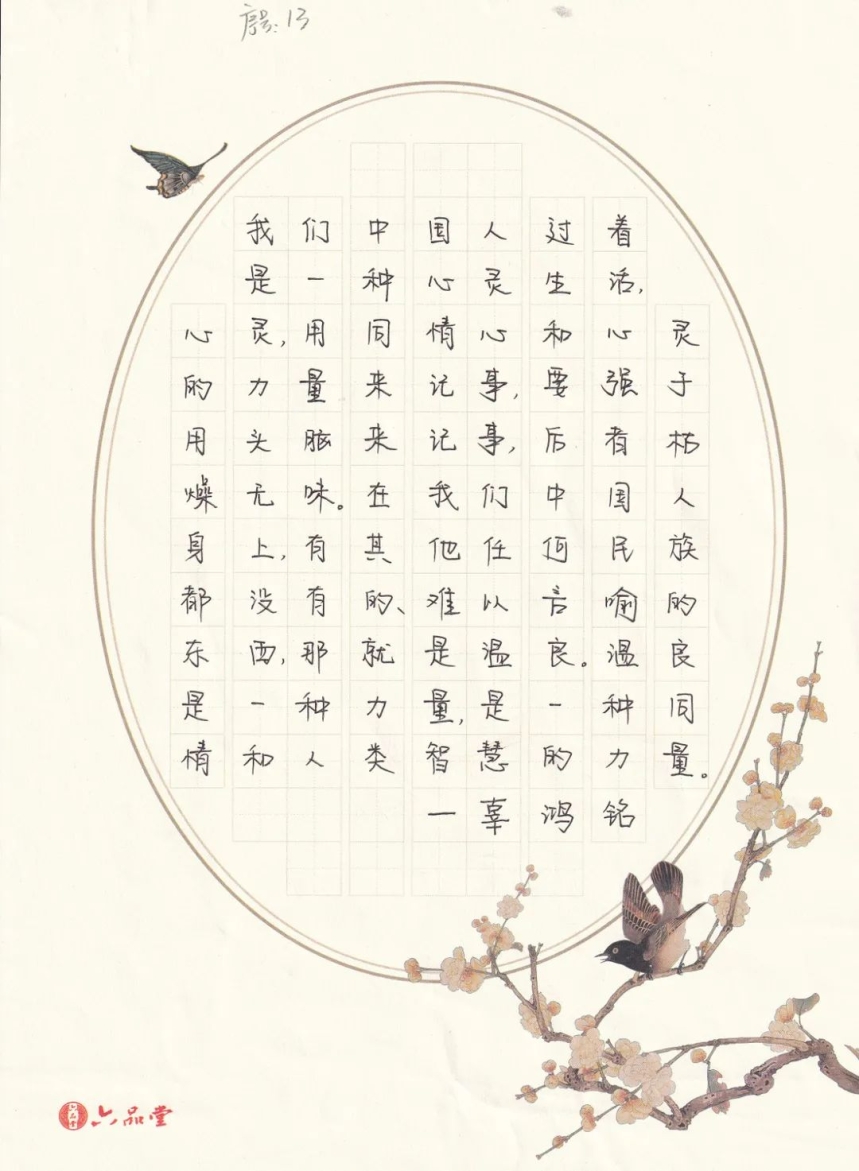 序号:13
我们中国人过着
是一种心灵生活,
心灵,用同情心和心灵
的力量来记事,要强于
用头脑来记事,后者枯
燥无味。在我们中国人
身上,有其他任何民族
都没有的、难以言喻的
东西,那就是温良。温良
是一种力量,是一种同
情和人类智慧的力量。
一辜鸿铭
六品堂